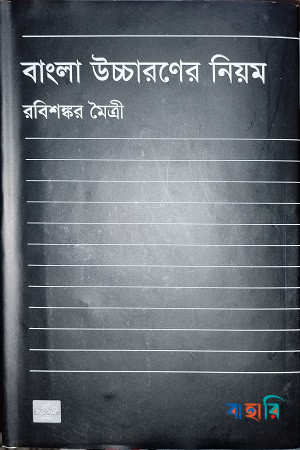 বাংলা উচ্চারণের নিয়ম
রবিশঙ্কর মৈত্রী
বাহারি